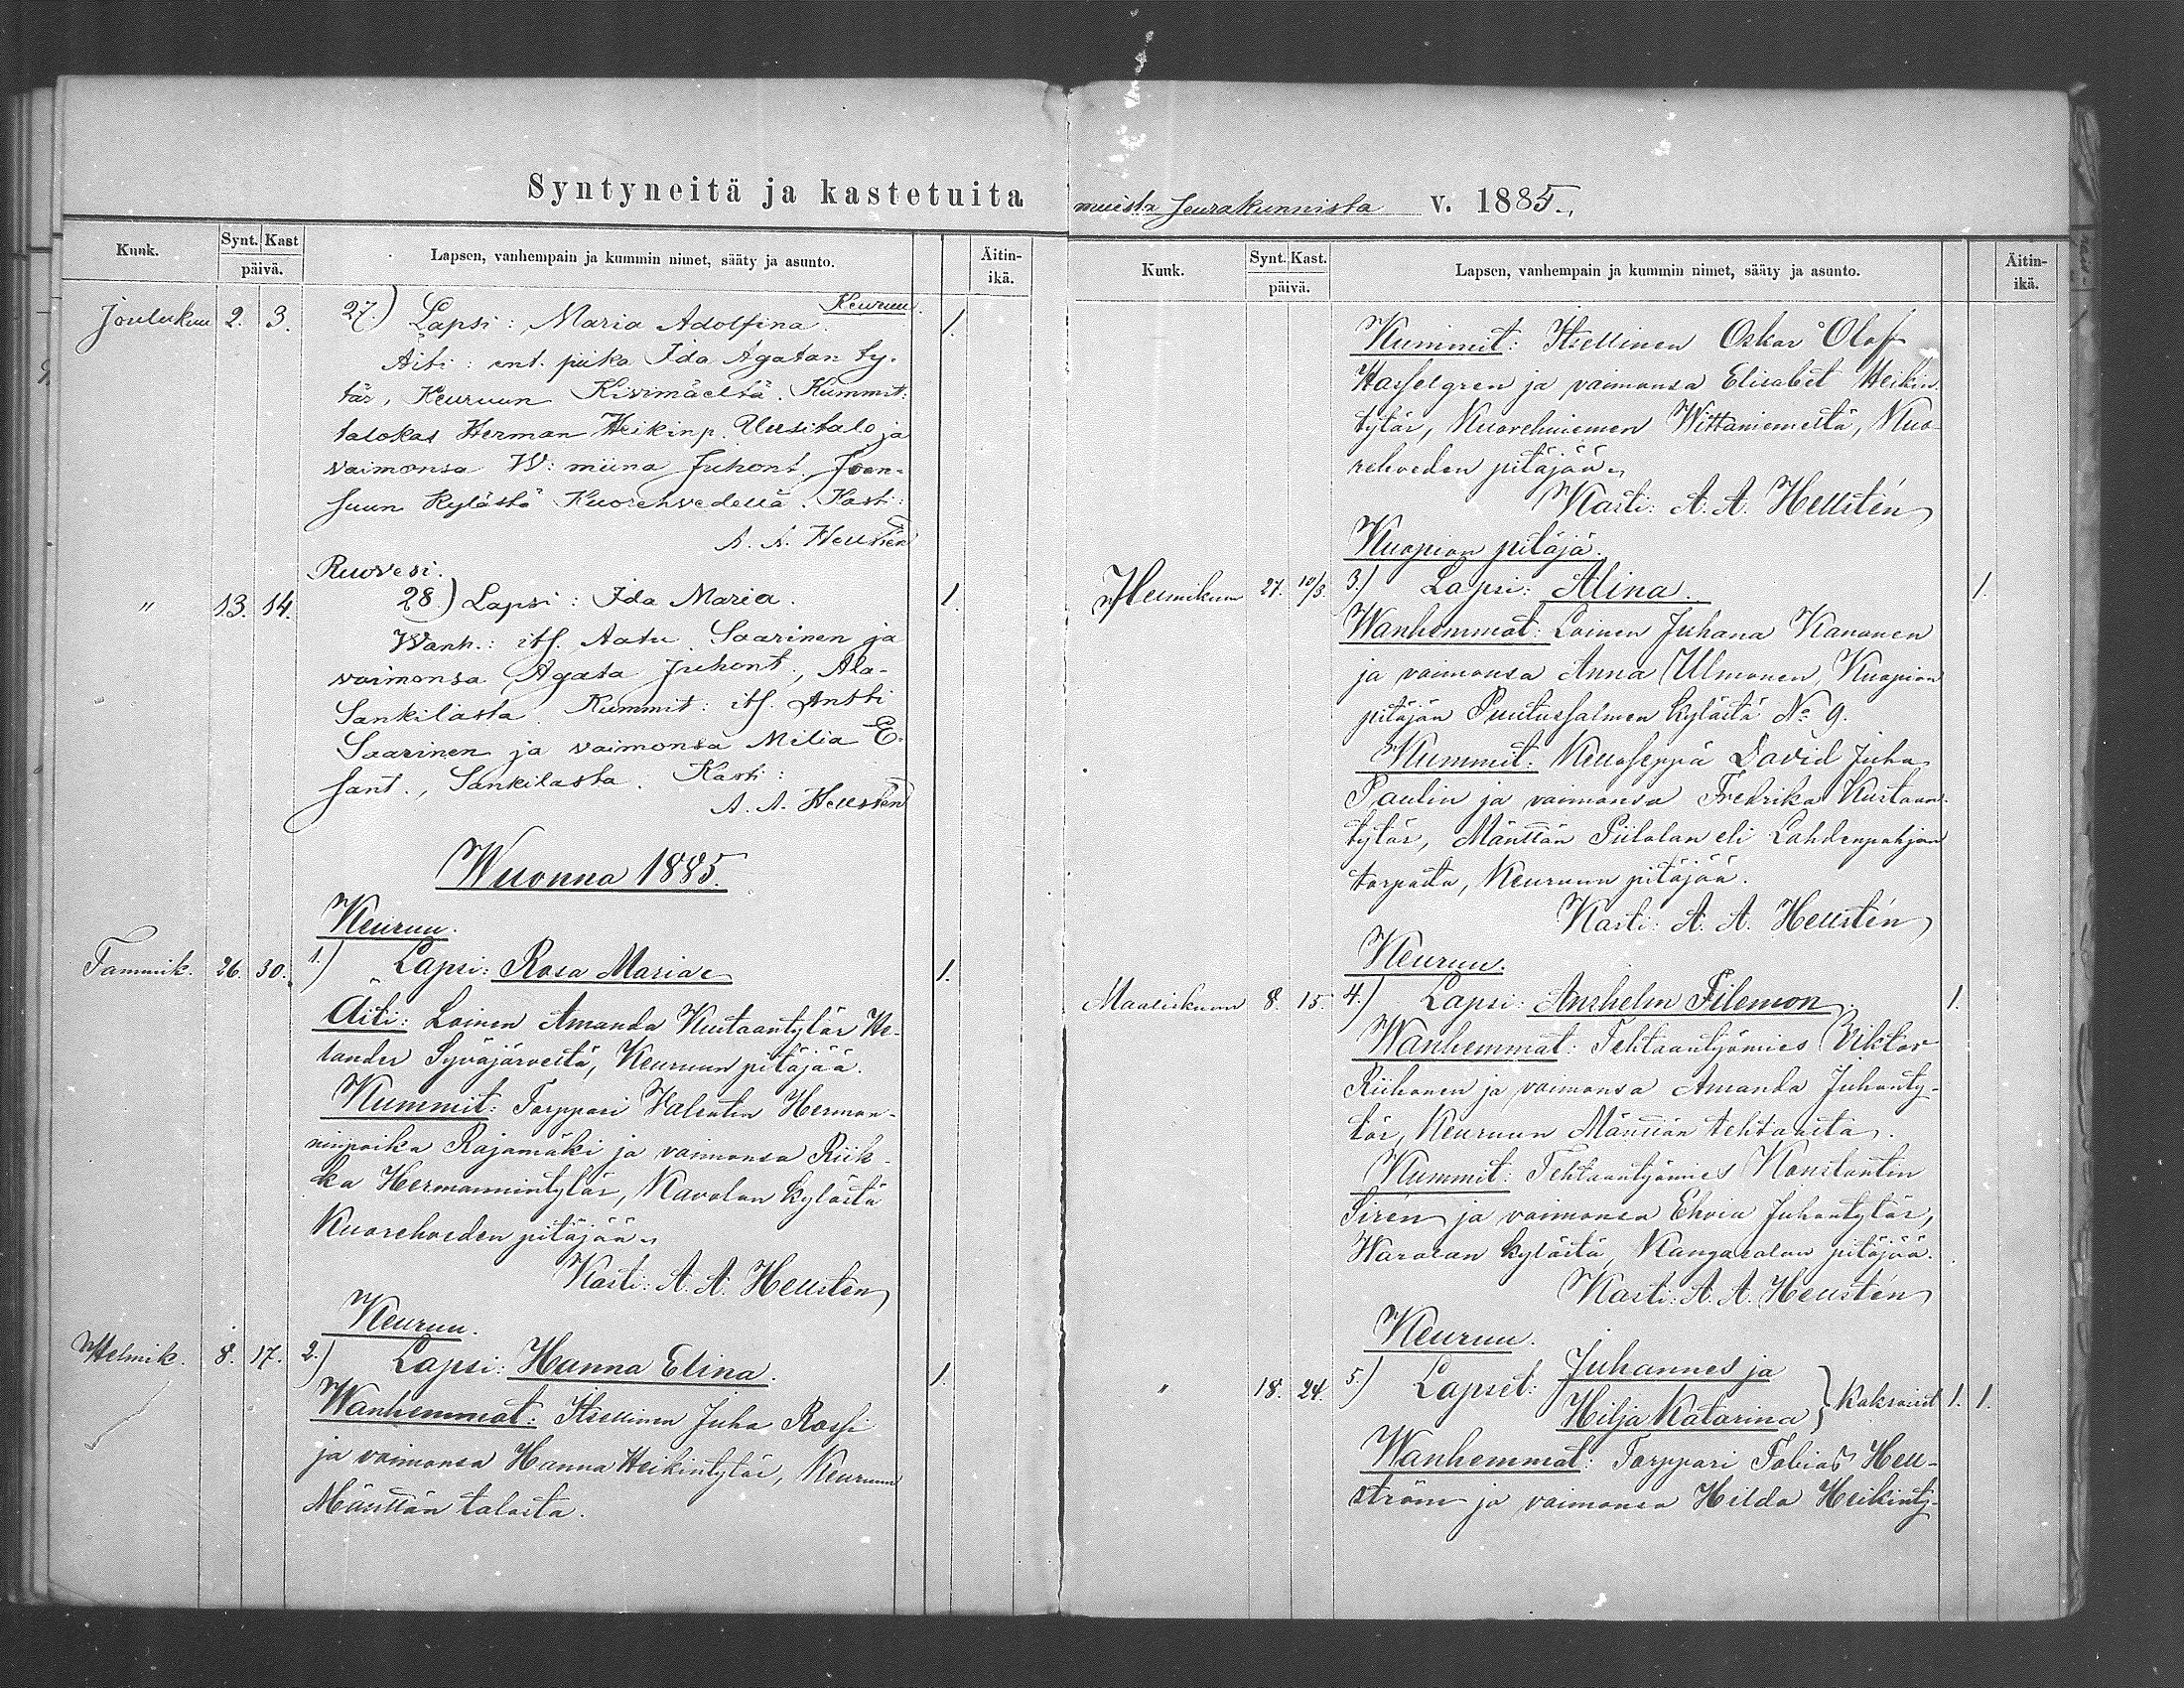 Syntyneitä ja kastetuita
Kuuk.
Synt. Kast
päivä.
Lapsen, vanhempain ja kummin nimet, sääty ja asunto.
Äitin-
ikä.
Keuruu.
Joulukuu 2. 3. 27.) Lapsi: Maria Adolfina. 1.
Äiti: ent. piika Ida Agatan ty-
tär, Keuruun Kivimäeltä. Kummit:
talokas Herman Heikinp. Uusitalo ja
vaimonsa W:miina Juhont. Joen-
suun kylästä Kuorehvedellä. Kasti:
A. A. Hellstén
Ruovesi.
" 13. 14. 28.) Lapsi: Ida Maria. 1.
Wanh.: its. Aatu Saarinen ja
vaimonsa Agata Juhont., Ala-
Sankilasta. Kummit: its. Antti
Saarinen ja vaimonsa Milia E.
sant., Sankilasta. Kasti:
A. A. Hellstén
Wuonna 1885.
Keuruu.
Tammik. 26. 30. 1.) Lapsi: Rosa Maria 1.
Äiti: Loinen Amanda Kustaantytär He-
lander Syväjärveltä, Keuruun pitäjää.
Kummit: Torppari Valentin Herman-
ninpoika Rajamäki ja vaimonsa Riik-
ka Hermannintytär, Kavalan kylästä
Kuorehveden pitäjää.
Kasti: A. A. Hellstén
Keuruu.
Helmik. 8. 17. 2.) Lapsi: Hanna Elina. 1.
Wanhemmat: Itsellinen Juha Rossi
ja vaimonsa Hanna Heikintytär, Keuruun
Mänttän talosta.
muista seurakunnista v. 1885.
Kuuk.
Synt. Kast.
päivä.
Lapsen, vanhempain ja kummin nimet, sääty ja asunto.
Äitin-
ikä.
Kummit: Itsellinen Oskar Olof
Hasselgren ja vaimonsa Elisabet Heikin-
tytär, Kuorehniemen Wittaniemeltä, Kuo-
rehveden pitäjää.
Kasti: A. A. Hellstén
Kuopion pitäjä.
Helmikuu 27. 10/3. 3.) Lapsi: Alina. 1.
Wanhemmat: Loinen Juhana Kananen
ja vaimonsa Anna Ulmonen, Kuopion
pitäjän Puutussalmen kylästä No 9.
Kummit: Kelloseppä David Juha
Paulin ja vaimonsa Fredrika Kustaan-
tytär, Mänttän Piilolan eli Lahdenpohjan
torpasta, Keuruun pitäjää.
Kasti: A. A. Hellstén
Keuruu.
Maaliskuun 8. 15. 4.) Lapsi: Anshelm Filemon. 1.
Wanhemmat: Tehtaantyömies Viktor
Riihonen ja vaimonsa Amanda Juhanty-
tär, Keuruun Mänttän tehtaasta.
Kummit: Tehtaantyömies Konstantin
Sirén ja vaimonsa Ehvia Juhantytär,
Waralan kylästä, Kangasalan pitäjää.
Kasti: A. A. Hellstén
Keuruu.
" 18. 24. 5.) Lapset: Juhannes ja
Hilja Katarina } Kaksoiset 1. 1.
Wanhemmat: Torppari Tobias Hell-
ström ja vaimonsa Hilda Heikinty-